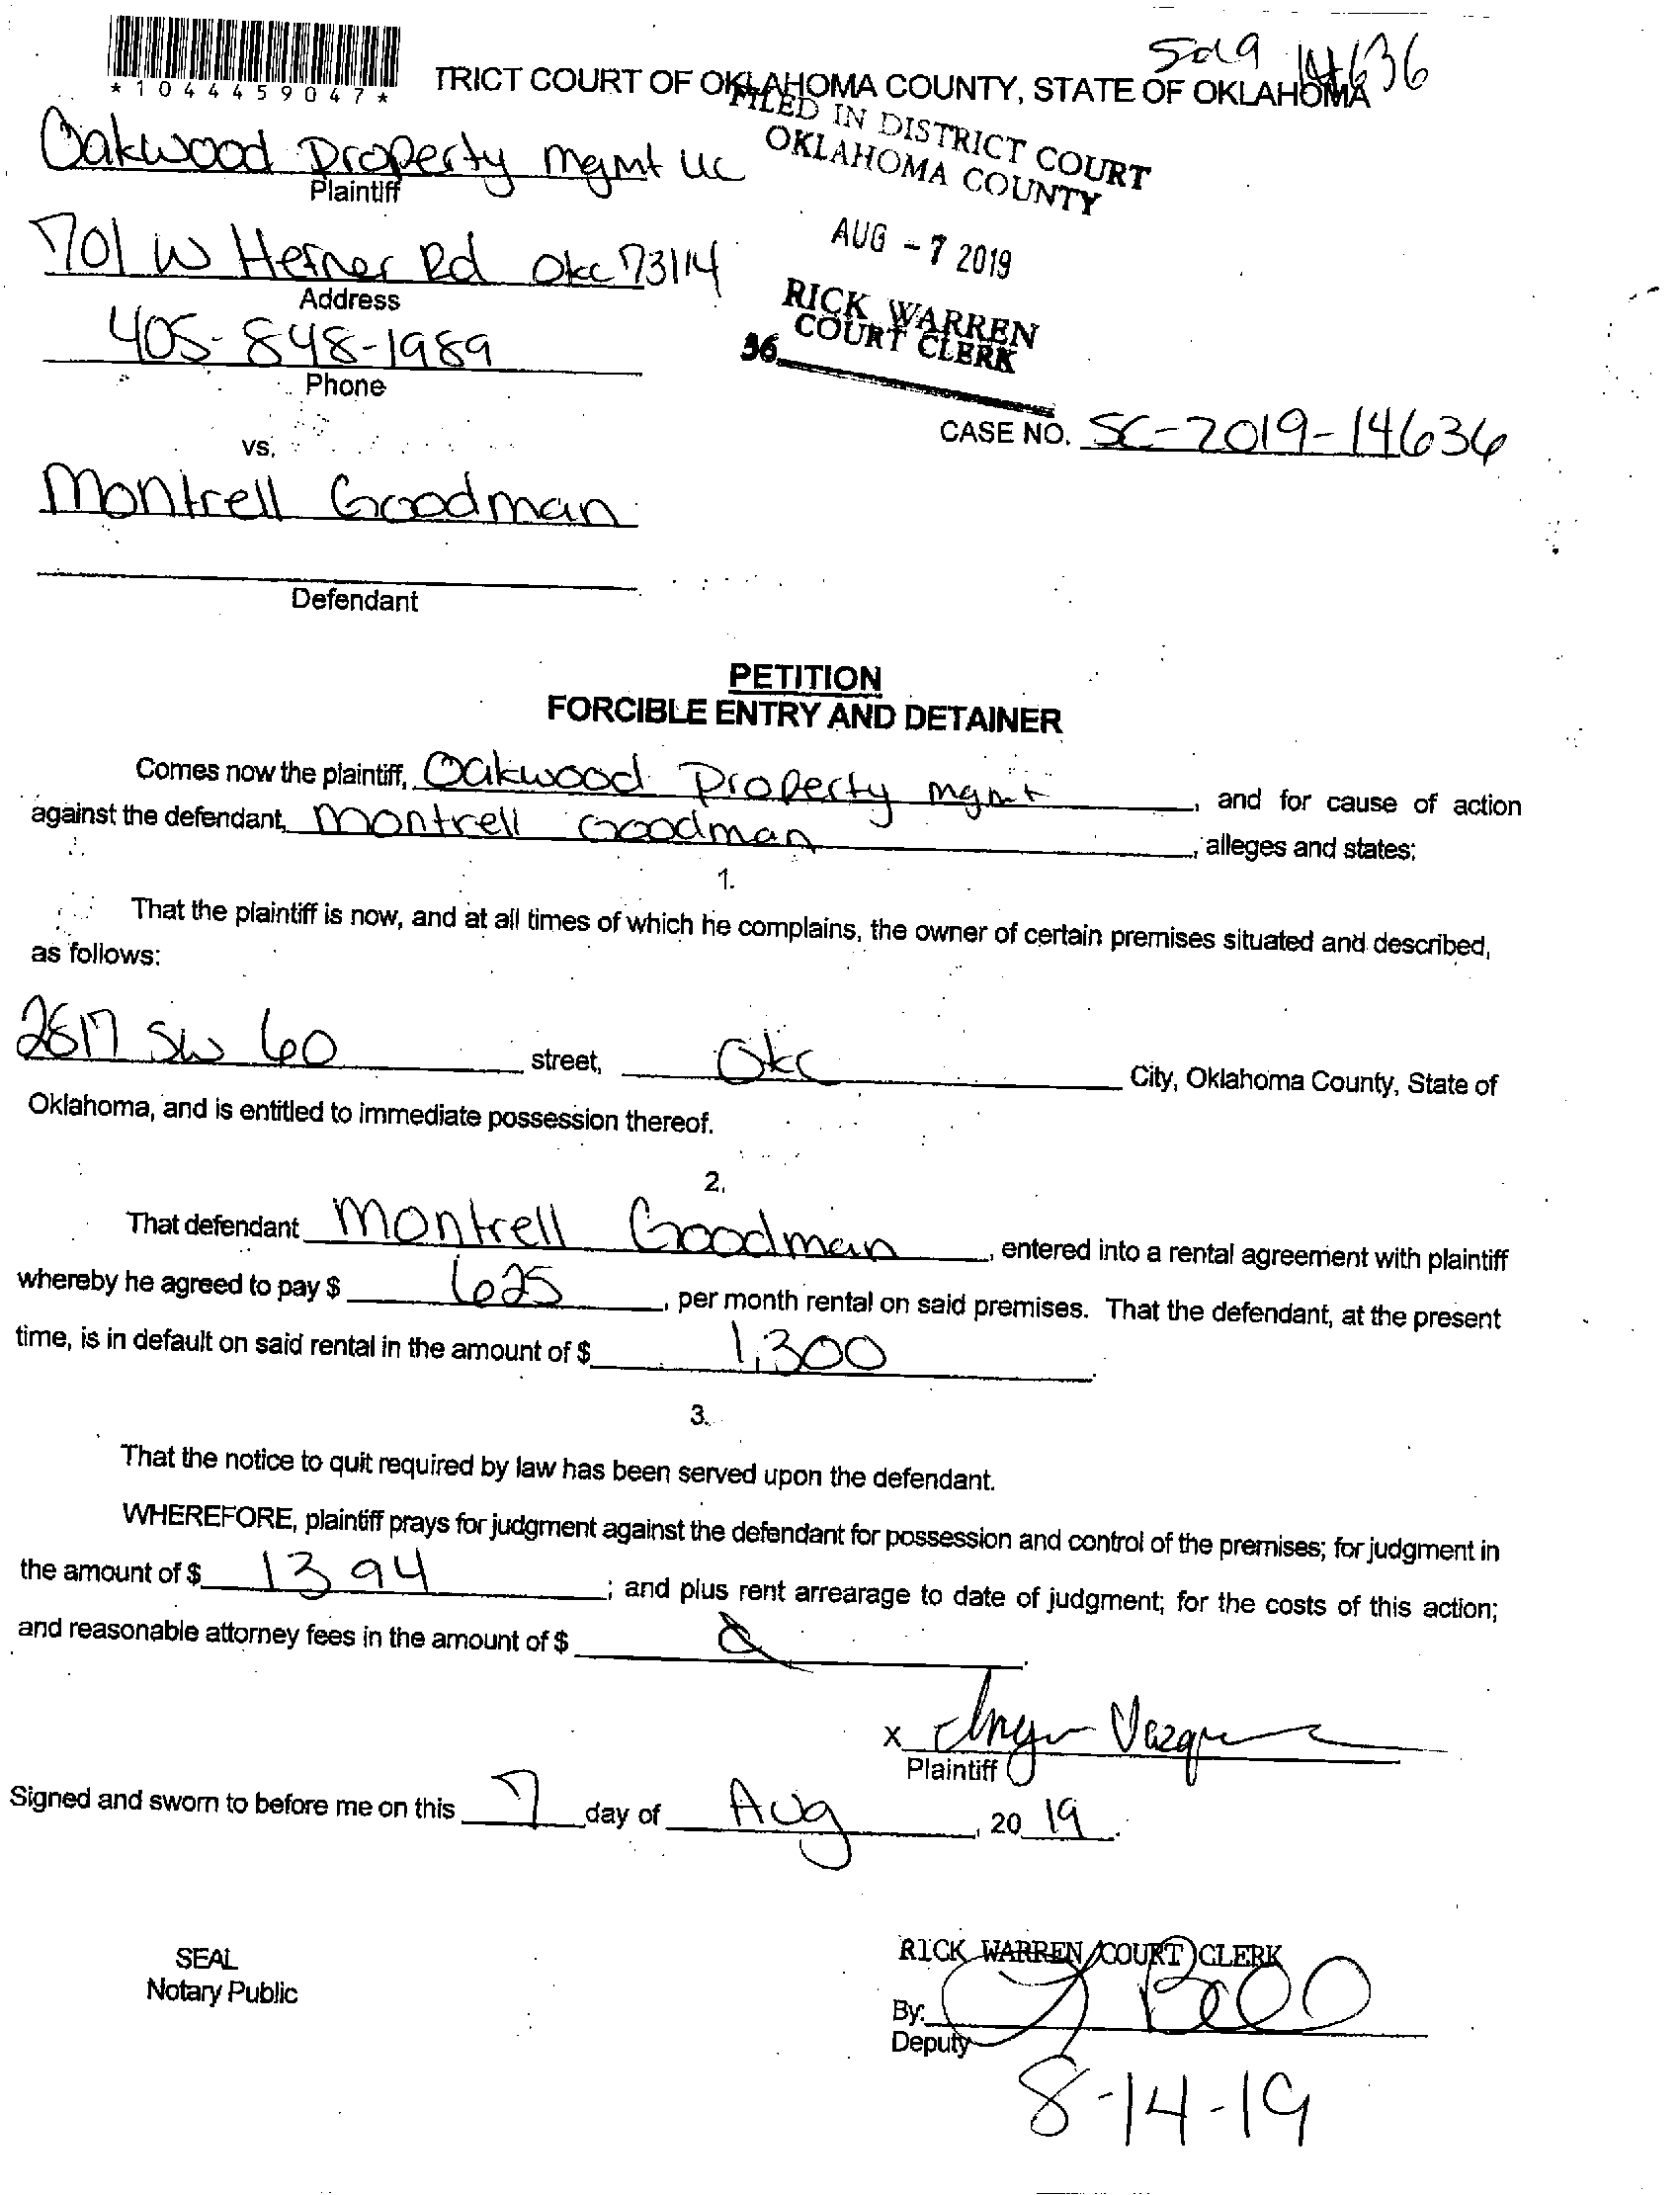 5019 14636
*1044459047*
TRICT COURT OF OKLAHOMA COUNTY, STATE OF OKLAHOMA
FILED IN DISTRICT COURT
OKLAHOMA COUNTY
Oakwood Property Mgmt LLC
Plaintiff
AUG -7 2019
701 W Hefner Rd Okc 73114
Address
RICK WARREN
COURT CLERK
36
405-848-1989
Phone
CASE NO. SC-2019-14636
vs.
Montrell Goodman
Defendant
PETITION
FORCIBLE ENTRY AND DETAINER
Comes now the plaintiff, Oakwood Property mgmt, and for cause of action
against the defendant, Montrell Goodman, alleges and states:
1.
That the plaintiff is now, and at all times of which he complains, the owner of certain premises situated and described,
as follows:
2617 SW 60 street, Okc City, Oklahoma County, State of
Oklahoma, and is entitled to immediate possession thereof.
2.
That defendant Montrell Goodman, entered into a rental agreement with plaintiff
whereby he agreed to pay $ 625, per month rental on said premises. That the defendant, at the present
time, is in default on said rental in the amount of $ 1,300.
3.
That the notice to quit required by law has been served upon the defendant.
WHEREFORE, plaintiff prays for judgment against the defendant for possession and control of the premises; for judgment in
the amount of $ 1394; and plus rent arrearage to date of judgment; for the costs of this action;
and reasonable attorney fees in the amount of $
x
Plaintiff
Signed and sworn to before me on this 7 day of Aug, 20 19.
SEAL
Notary Public
RICK WARREN, COURT CLERK
By:
Deputy
8-14-19